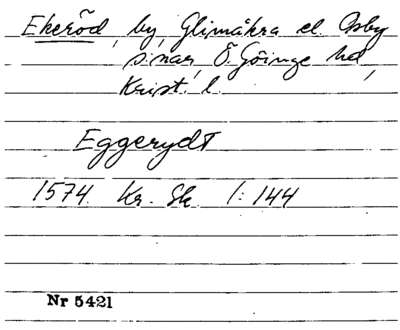 Ekeröd, by, Glimåkra el. Osby
s:nar, Ö. Göinge hd,
Krist. l.
Eggerydt
1574. Kr. Sk. 1: 144
Nr 5421